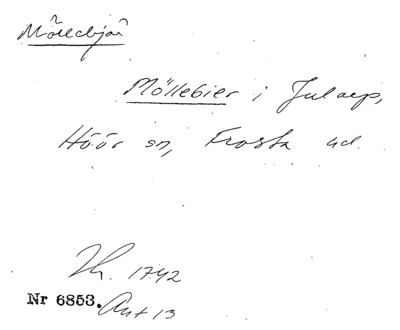 Möllebjär
Möllebier i Jularp,
Höör sn, Frosta hd.
Th. 1742
Nr 6853. Ant 13